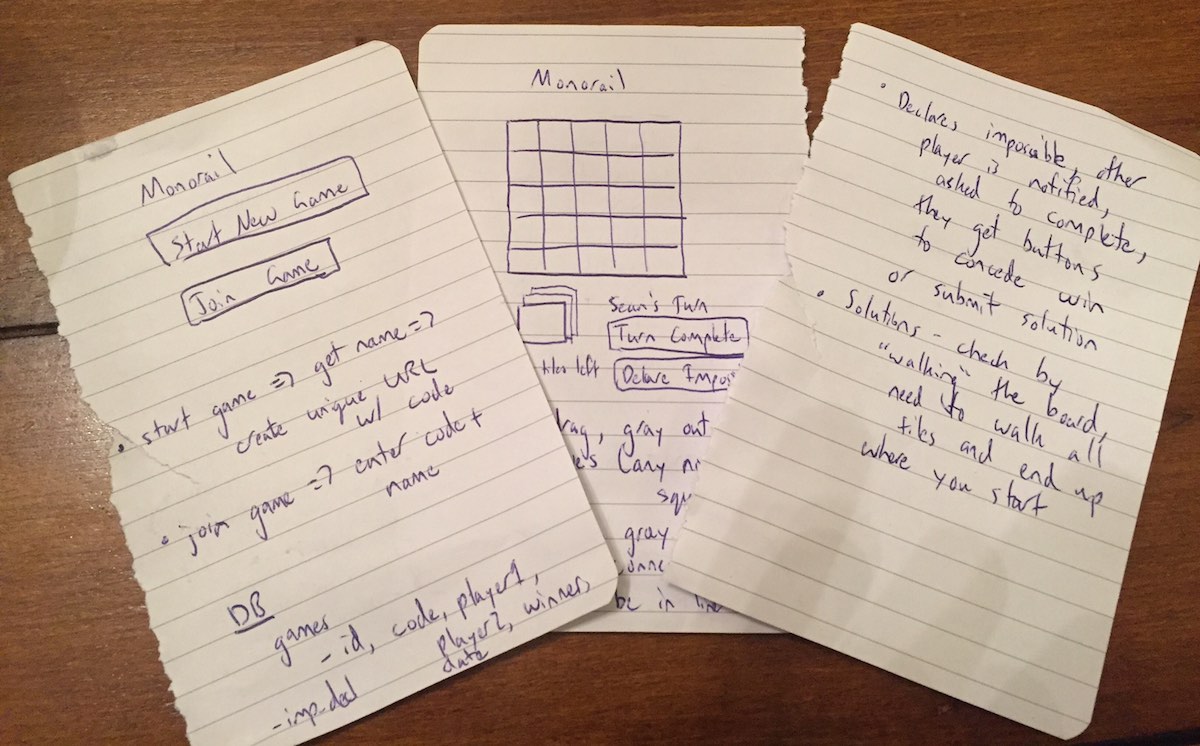 Monorail
Start New Game
Join Game
• start game => get name =>
create unique URL
w/ code
• join game => enter code +
name
DB
games
- id, code, player1,
player2, winner,
date
- imp-decl
Monorail
Sean's Turn
Turn Complete
tiles left
Declare Impos
rag, gray out
squ
gray
be in line
• Declares impossible, other
player is notified,
asked to complete,
they get buttons
to concede win
or submit solution
• Solutions - check by
"walking" the board,
need to walk all
tiles and end up
where you start